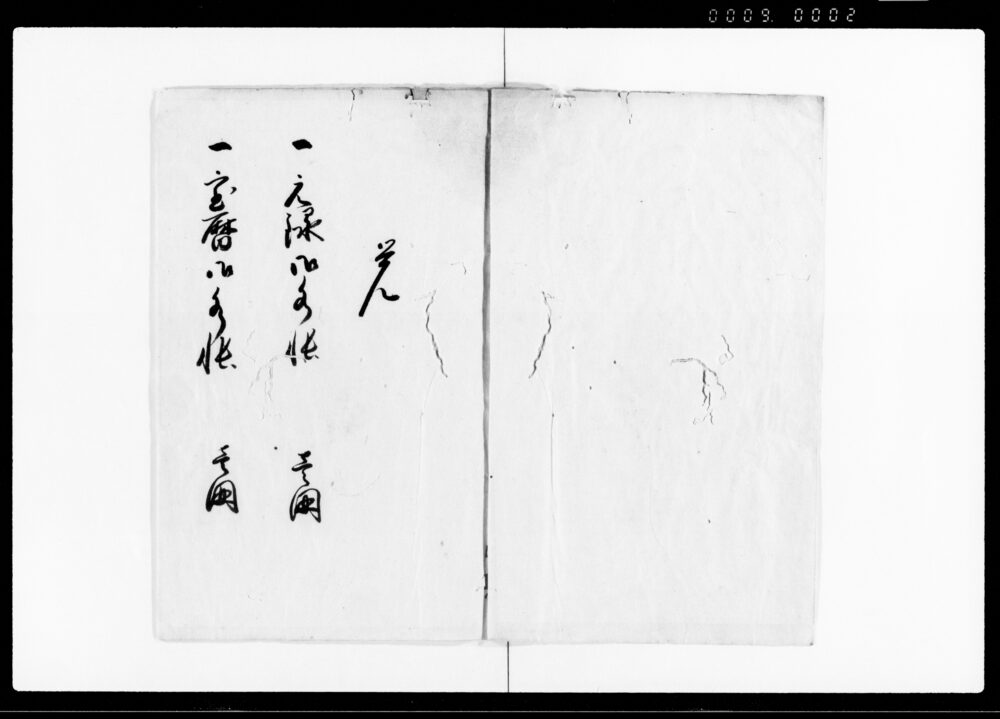 0009. 0002
覚
一元禄御水帳 壱冊
一宝暦御水帳 壱冊